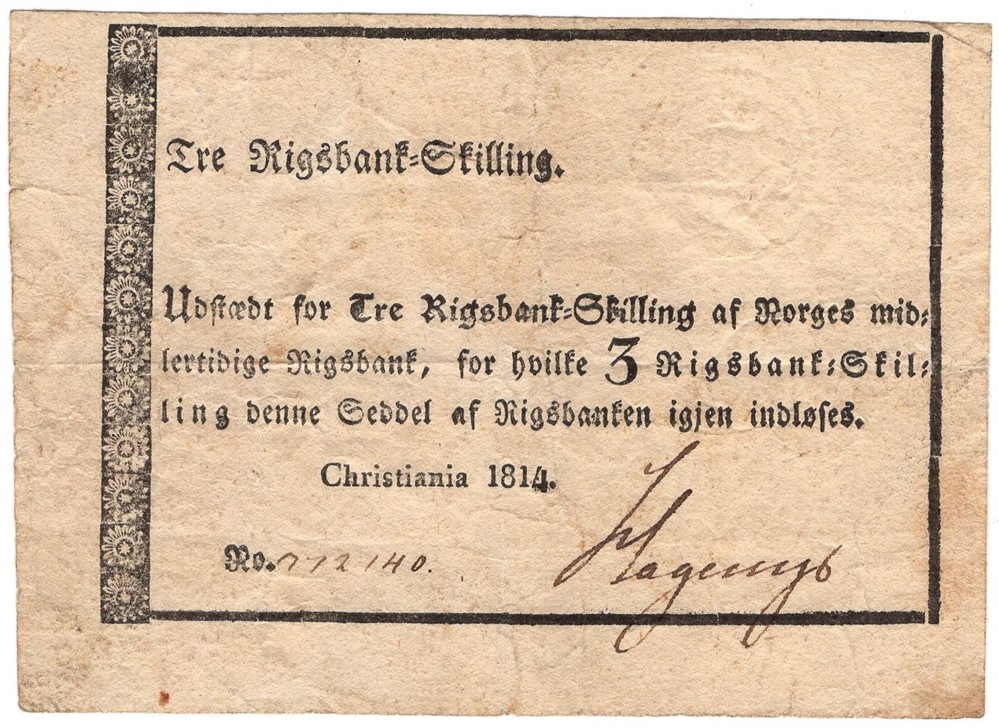 Tre Rigsbank-Skilling.
Udstædt for Tre Rigsbank-Skilling af Norges mid-
lertidige Rigsbank, for hvilke 3 Rigsbank-Skil-
ling denne Seddel af Rigsbanken igjen indløses.
Christiania 1814.
No. 772140.